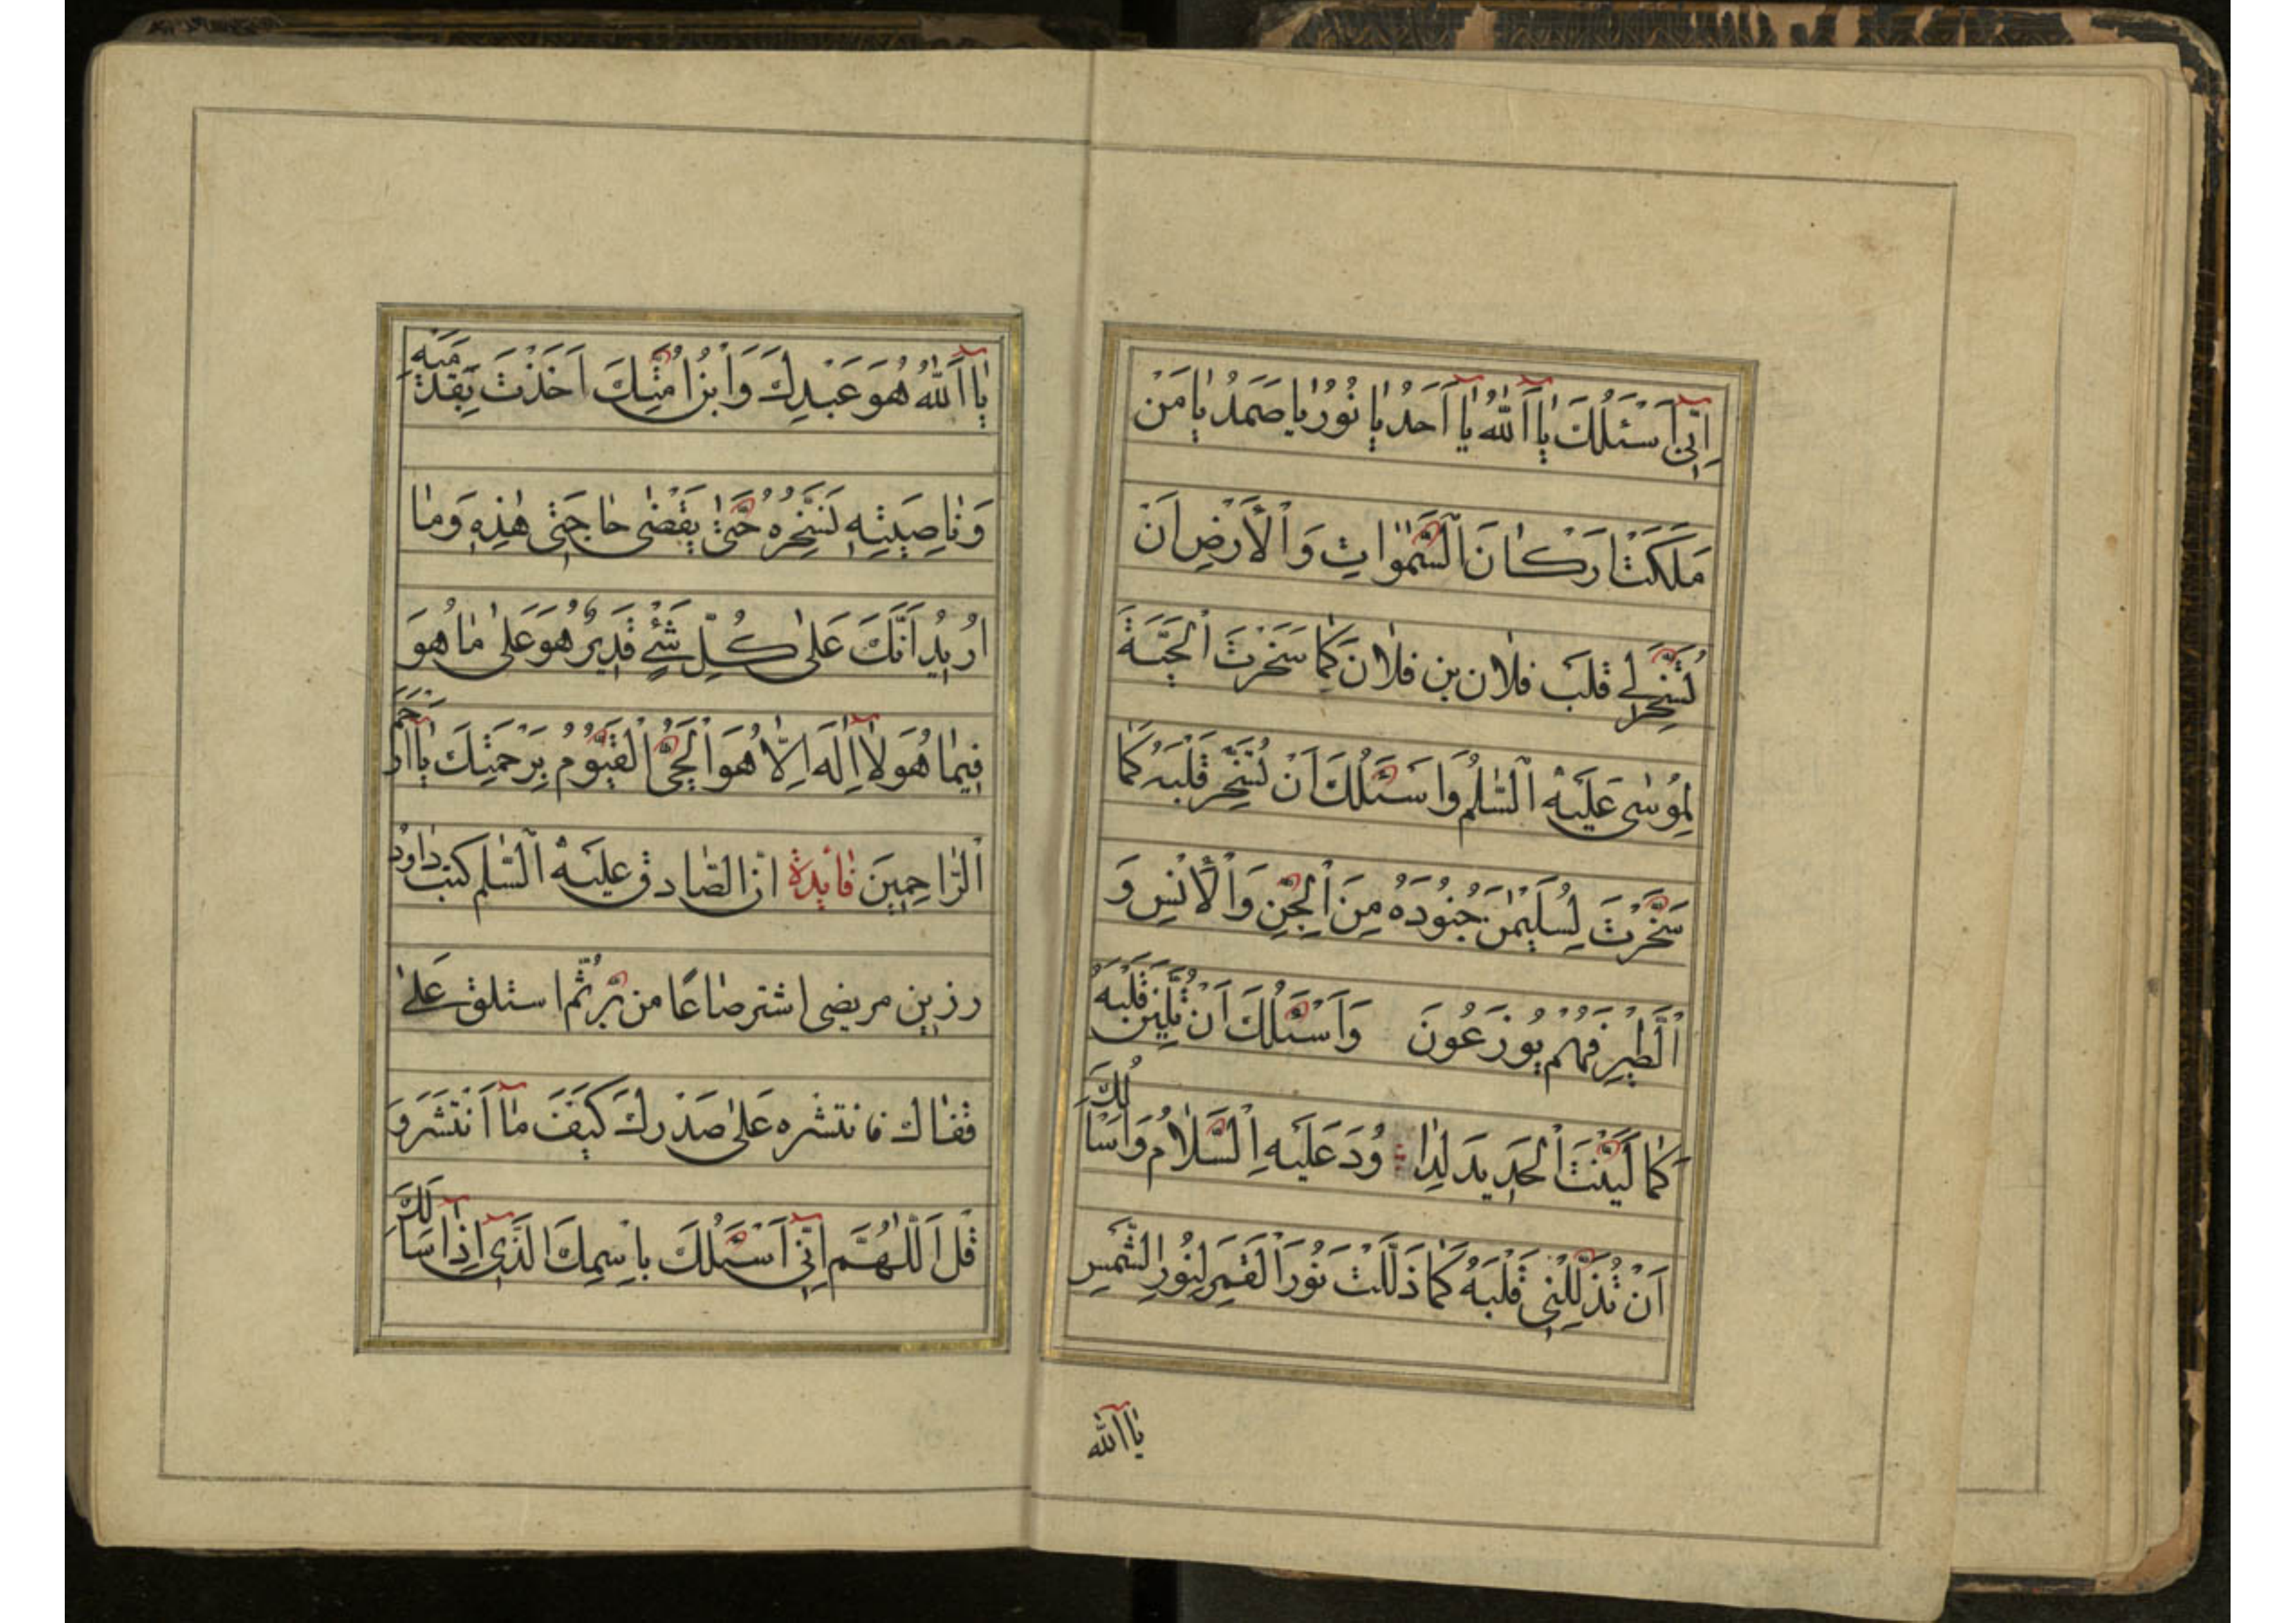 اِنّىٓ اَسْئَلُكَ يٰٓا اَللّٰهُ يٰٓا اَحَدُ يٰا نُوْرُ يٰا صَمَدُ يٰا مَنْ
مَلَكَتْ اَرْكانَ السَّمٰوٰاتِ وَالْاَرْضِ اَنْ
تُسَخِّرَ لى قلبَ فلان بن فلان كَمٰا سَخَّرْتَ الْحَيَّةَ
لِمُوسٰى عَلَيْهِ السَّلٰمُ وَاَسْئَلُكَ اَنْ تُسَخِّرَ قَلْبَهُ كَمٰا
سَخَّرْتَ لِسُلَيْمٰنَ جُنُودَهُ مِنَ الْجِنِّ وَالْاُنْسِ وَ
الطَّيْرِ فَهُمْ يُوزَعُونَ وَاَسْئَلُكَ اَنْ تُلَيِّنَ قَلْبَهُ
كَمٰا لَيَّنْتَ الْحَدِيدَ لِدٰا وُدَ عَلَيْهِ السَّلٰامُ وَاَسْاَلُكَ
اَنْ تُذَلِّلَنِى قَلْبَهُ كَمٰا ذَلَّلْتَ نُورَ الْقَمَرِ لِنُورِ الشَّمْسِ
يٰٓا اَللّٰه
يٰٓا اَللّٰهُ هُوَ عَبْدِكَ وَابْنُ اَمَتِكَ اَخَذْتَ بِقَدَمَيْهِ
وَنٰاصِيَتِهِ تُسَخِّرُهُ حَتّٰى يَقْضٰى حٰاجَتى هٰذِهِ وَمٰا
اُرِيدُ اَنَّكَ عَلٰى كُلِّ شَئٍ قَدِيرٌ هُوَ عَلٰى مٰا هُوَ
فِيمٰا هُوَ لٰٓا اِلٰهَ اِلّٰا هُوَ الْحَىُّ الْقَيُّومُ بِرَحْمَتِكَ يٰٓا اَرْحَمَ
الرّٰاحِمِينَ فٰائِدَة انّ الصّٰادق عليه السّٰلم كتب داود
رزين مريضى اشتر صٰاعًا من بُرّ ثُمّ استلق عَلٰى
قفٰاك فانتشره عَلٰى صَدْرِكَ كَيْفَ مٰٓا اَنْتَشَرَ وَ
قُل اَللّٰهُمَّ اِنّىٓ اَسْئَلُكَ بِاسْمِكَ الَّذىٓ اِذٰٓا سَاَلَكَ